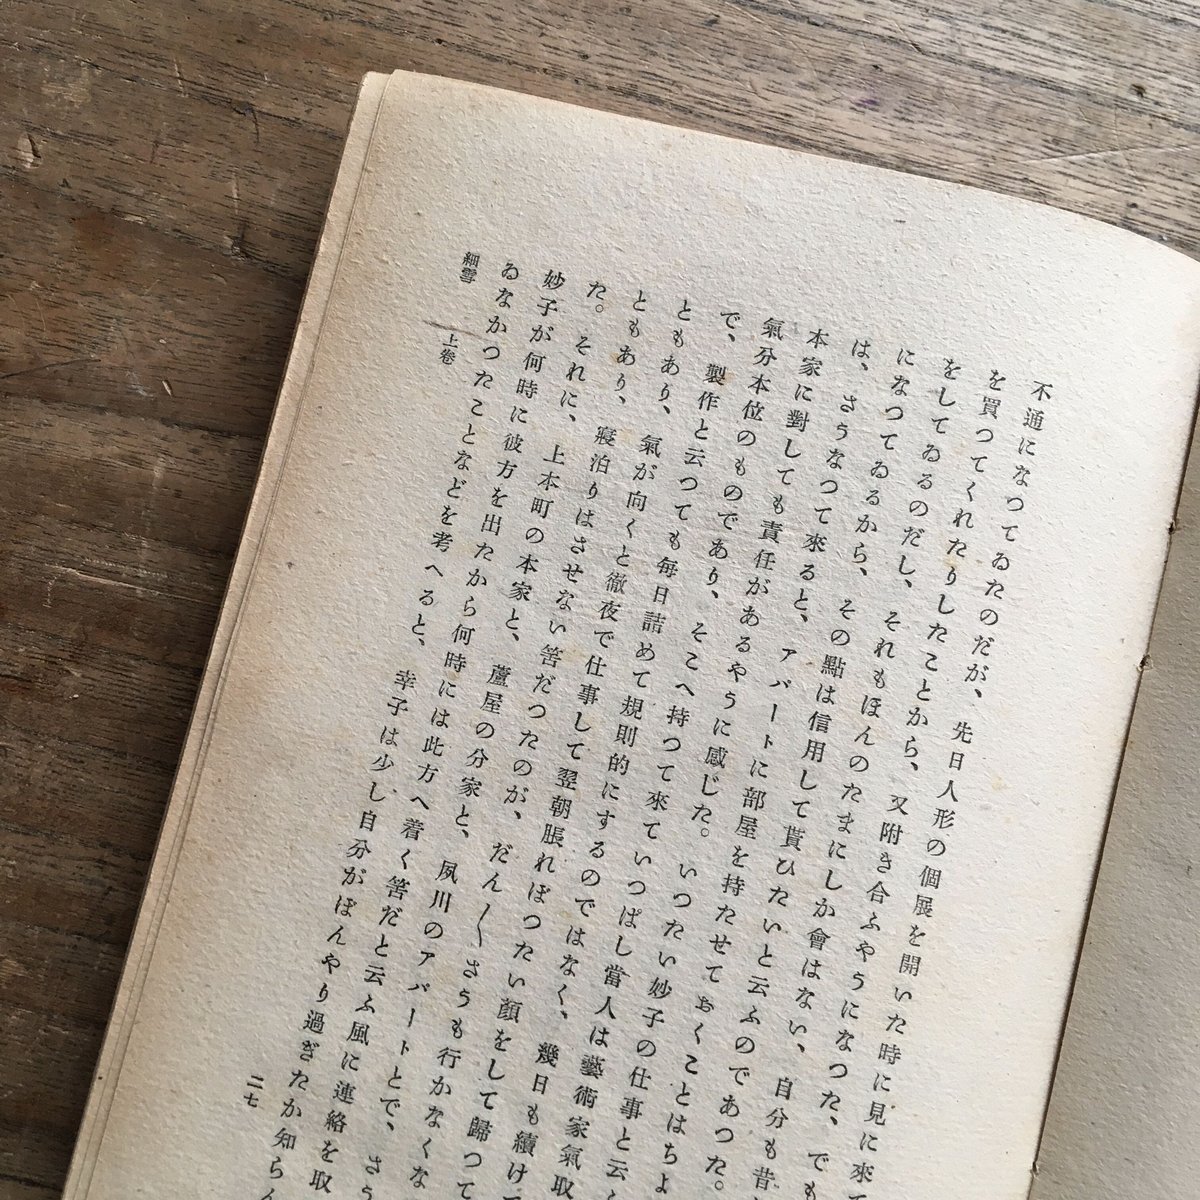 不通になつてゐたのだが、先日人形の個展を開いた時に見に來て
を買つてくれたりしたことから、又附き合ふやうになつた、でも
をしてゐるのだし、それもほんのたまにしか會はない、自分も昔
になつてゐるから、その點は信用して貰ひたいと云ふのであつた。
は、さうなつて來ると、アパートに部屋を持たせておくことはちよ
本家に對しても責任があるやうに感じた。いつたい妙子の仕事と云
氣分本位のものであり、そこへ持つて來ていつぱし當人は藝術家氣取
で、製作と云つても毎日詰めて規則的にするのではなく、幾日も續けて
ともあり、氣が向くと徹夜で仕事して翌朝脹れぼつたい顏をして歸つて
ともあり、寢泊りはさせない筈だつたのが、だん〱さうも行かなくな
た。それに、上本町の本家と、蘆屋の分家と、夙川のアパートとで、さう
妙子が何時に彼方を出たから何時には此方へ着く筈だと云ふ風に連絡を取
ゐなかつたことなどを考へると、幸子は少し自分がぼんやり過ぎたか知らん
細雪 上卷
二七